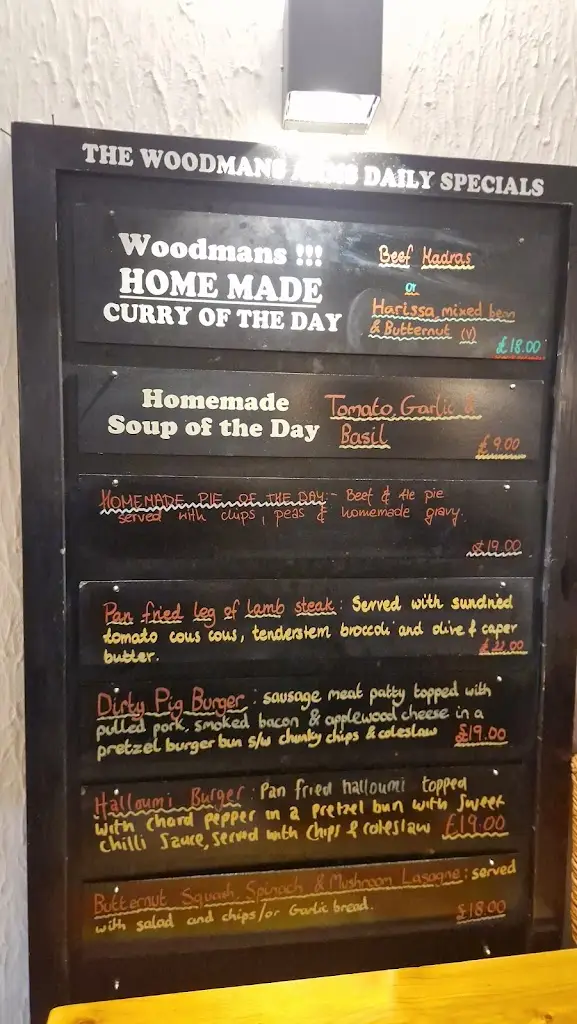 THE WOODMANS ARMS DAILY SPECIALS
Woodmans !!!
HOME MADE
CURRY OF THE DAY
Beef Madras
or
Harissa mixed bean
& Butternut (V)
£18.00
Homemade
Soup of the Day
Tomato, Garlic &
Basil
£9.00
HOMEMADE PIE OF THE DAY:- Beef & Ale pie
served with chips, peas & homemade gravy.
£19.00
Pan fried leg of lamb steak: Served with sundried
tomato cous cous, tenderstem broccoli and olive & caper
butter.
Dirty Pig Burger: sausage meat patty topped with
pulled pork, smoked bacon & applewood cheese in a
pretzel burger bun s/w chunky chips & coleslaw £19.00
Halloumi Burger: Pan fried halloumi topped
with chard pepper in a pretzel bun with sweet
chilli sauce, served with chips & coleslaw £19.00
Butternut Squash, Spinach & Mushroom Lasagne: served
with salad and chips/or Garlic bread.
£18.00